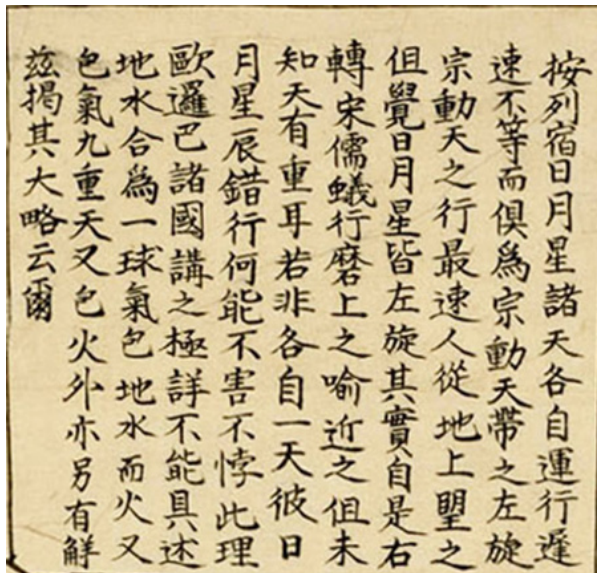 按列宿日月星諸天各自運行遲
速不等而俱爲宗動天帶之左旋
宗動天之行最速人從地上朢之
但覺日月星皆左旋其實自是右
轉宋儒蟻行磨上之喻近之但未
知天有重耳若非各自一天彼日
月星辰錯行何能不害不悖此理
歐邏巴諸國講之極詳不能具述
地水合爲一球氣包地水而火又
包氣九重天又包火外亦另有解
茲揭其大略云爾